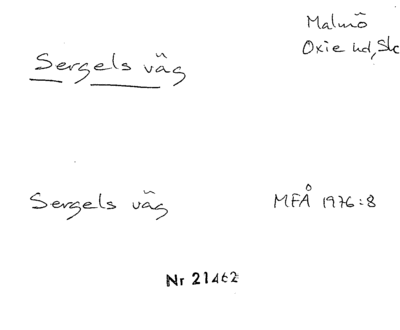 Malmö
Oxie hd, Sk
Sergels väg
Sergels väg MFÅ 1976:8
Nr 21462